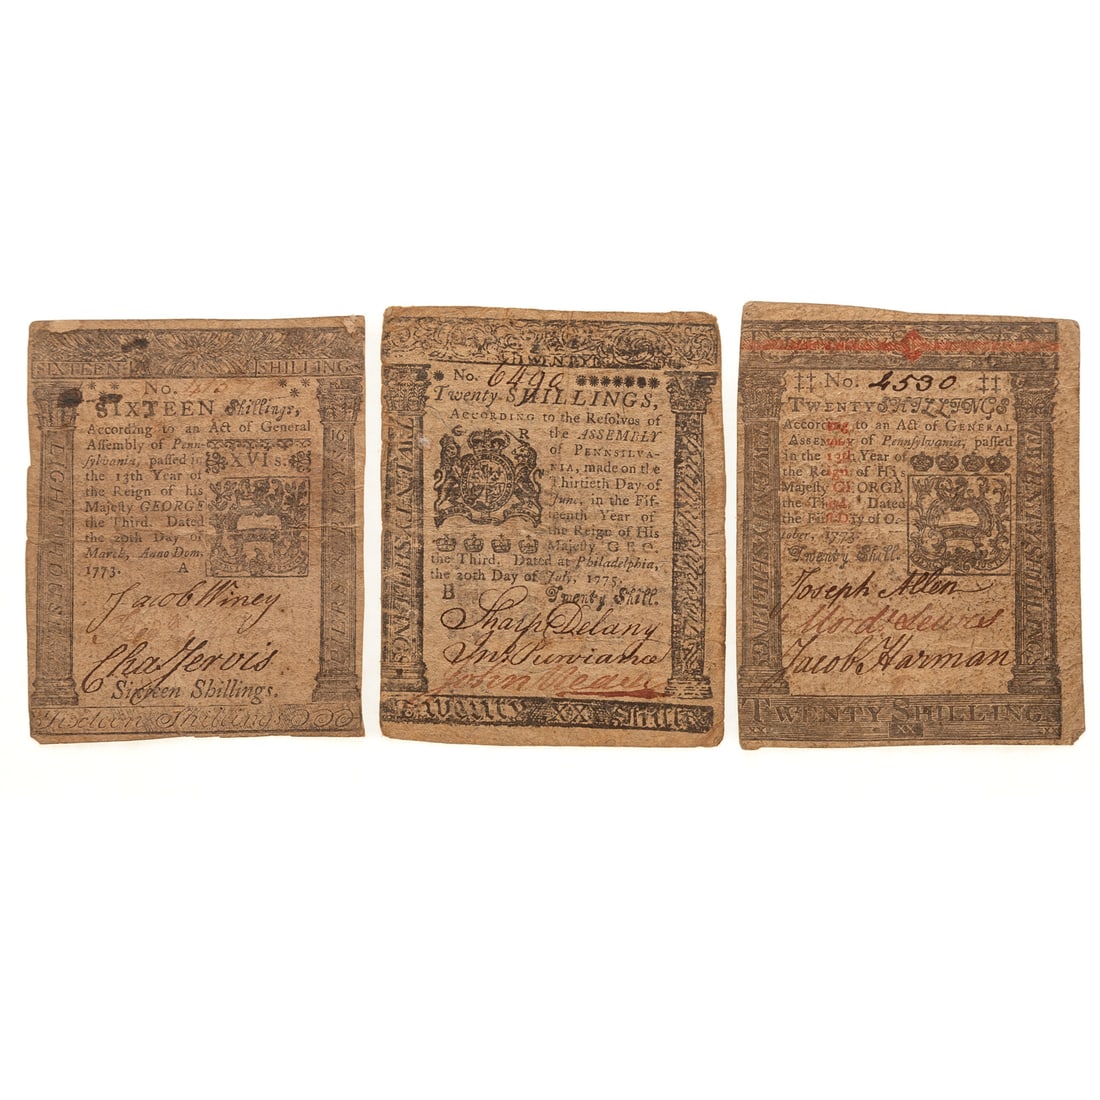 SIXTEEN SHILLING
No.
SIXTEEN Shillings,
According to an Act of General
Assembly of Penn-
sylvania, passed in
the 13th Year of
the Reign of his
Majesty GEORGE
the Third. Dated
the 20th Day of
March, Anno Dom.
1773. A
XVI s.
16
Jacob Winey
Cha Jervis
Sixteen Shillings.
Sixteen Shillings
No. 6490
Twenty SHILLINGS,
ACCORDING to the Resolves of
G R
the ASSEMBLY
of PENNSYLVA-
NIA, made on the
Thirtieth Day of
June, in the Fif-
teenth Year of
the Reign of His
Majesty GEO.
the Third. Dated at Philadelphia,
the 20th Day of July, 1775.
B Twenty Shill.
Sharp Delany
Jno. Purviance
John
Twenty XX Shill
No. 4530
TWENTY SHILLINGS
According to an Act of GENERAL
ASSEMBLY of Pennsylvania, passed
in the 13th Year of
the Reign of His
Majesty GEORGE
the Third. Dated
the First Day of O-
tober, 1773.
Twenty Shill.
Joseph Allen
Mord. Lewis
Jacob Harman
TWENTY SHILLING
XX XX XX